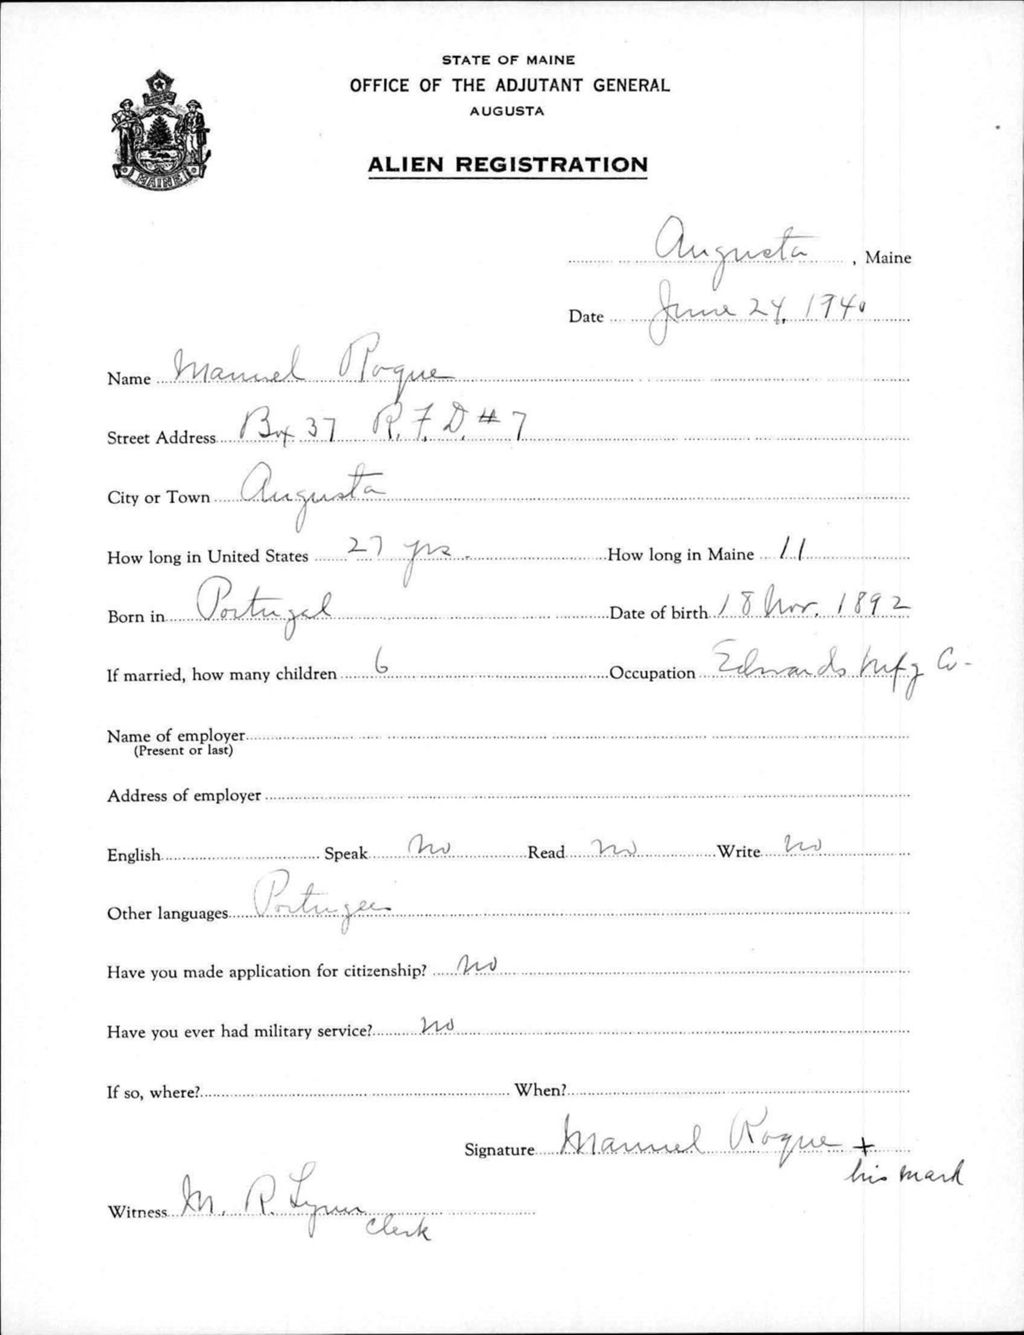 STATE OF MAINE
OFFICE OF THE ADJUTANT GENERAL
AUGUSTA
ALIEN REGISTRATION
MAINE
Augusta, Maine
Date June 24, 1940
Name Manuel Roque
Street Address Box 37 R.F.D. #7
City or Town Augusta
How long in United States 27 yrs. How long in Maine 11
Born in Portugal Date of birth 18 Nov. 1892
If married, how many children 6 Occupation Edwards Mfg Co-
Name of employer
(Present or last)
Address of employer
English Speak No Read No Write No
Other languages Portugee
Have you made application for citizenship? No
Have you ever had military service? No
If so, where? When?
Signature Manuel Roque +
his mark
Witness M. R. Lynn
Clerk